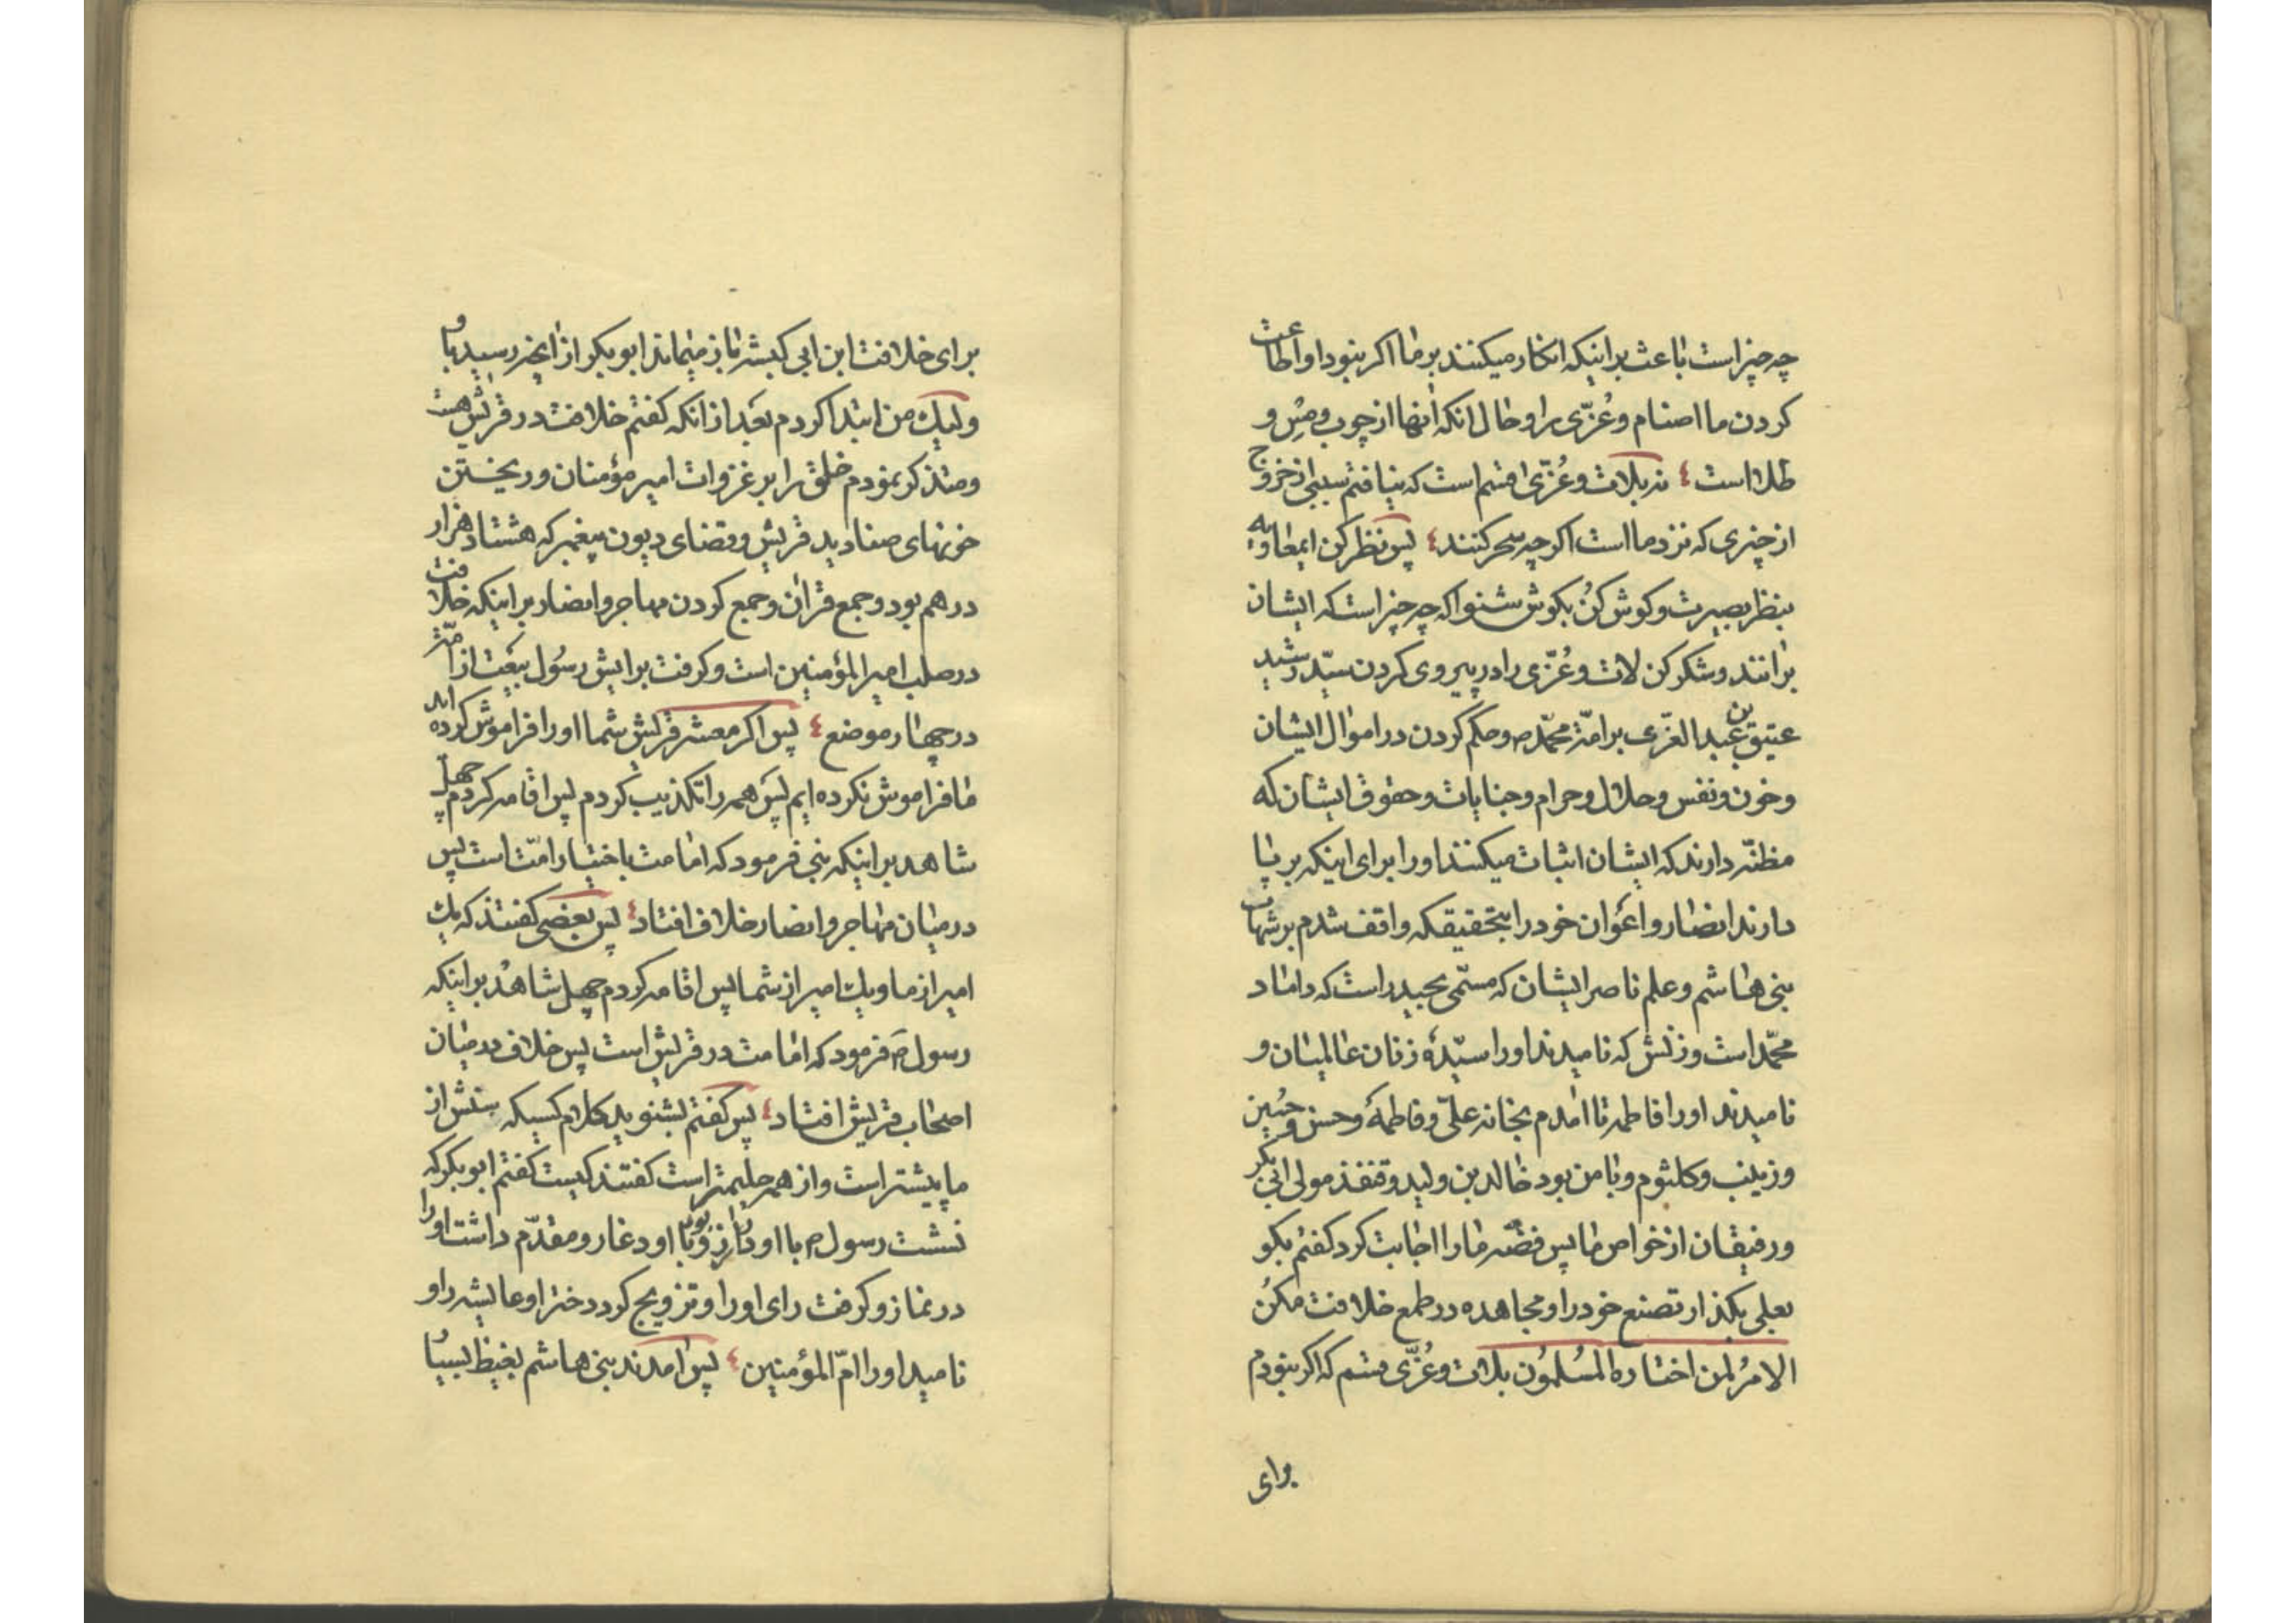 چه چیز است باعث بر اینکه انکار میکنند بر ما اکر نبود اواطاعت
کردن ما اصنام و عُزّی را و حال انکه انها از چوب و مِس و
طلا است نه بلات و عُزّی قسم است که نیافتم سببی از خروج
از چیزی که نزد ما است اکر چه سحر کنند پس نظر کن ایمعاویه
بنظر بصیرت و کوش کُن بکوش شنوا که چه چیز است که ایشان
برانند و شکر کن لات و عُزّی را در پیروی کردن سیّد رشید
عتیق بن عبد العزّی بر امّة محمّد ص و حکم کردن در اموال ایشان
و خون و نفس و حلال و حرام و جنایات و حقوق ایشان که
مظنّه دارند که ایشان اثبات میکنند او را برای اینکه بر پا
دارند انصار و اعَوان خود را بتحقیقکه واقف شدم بر شهاب
بنی هاشم و علم ناصر ایشان که مسمّی بحیدر است که داماد
محمّد است و زنش که نامیدند او را سیّدهٔ زنان عالمیان و
نامیدند او را فاطمه تا امدم بخانه علیّ و فاطمهٔ و حسن و حُسین
و زینب و کلثوم و با من بود خالد بن ولید و قنفذ مولی ابی بکر
و رفیقان از خواص ما پس فضّه ما را اجابت کرد کفتم بکو
بعلی بکذار تصنع خود را و مجاهده در طمع خلافت مکُن
الامرُ لمن اختاره المسُلموُن بلات و عُزّی قسم که اکر نبودم
برای
برای خلافت ابن ابی کبشه باز میماند ابو بکر از انچه رسید باو
ولیک من ابتدا کردم بعَد از انکه کفتم خلافت در قریش هست
و متذکر نمودم خلق را بر غزوات امیر مؤمنان و ریختن
خونهای صنادید قریش و قضای دیون پیغمبر که هشتاد هزار
درهم بود و جمع قران و جمع کردن مهاجر و انصار بر اینکه خلافت
در صلب امیر المؤمنین است و کرفت برایش رسُول بیعَت از امّة
در چهار موضع پس اکر معشر قریش شما او را فراموش کرده اید
ما فراموش نکرده ایم پس همه را تکذیب کردم پس اقامه کردم چهل
شاهد بر اینکه نبی فرمود که امامت باختیار امّت است پس
در میان مهاجر و انصار خلاف افتاد پس بعضی کفتند که یک
امیر از ما و یک امیر از شما پس اقامه کردم چهل شاهد بر اینکه
رسول ص فرمود که امامت در قریش است پس خلاف در میان
اصحاب قریش افتاد پس کفتم بشنوید کلام کسیکه سنش از
ما پیشتر است و از همه حلیمتر است کفتند کیست کفتم ابو بکر که
نشست رسول ص با او در روز و با او در غار و مقدّم داشت او را
در نماز و کرفت رای او را و تزویج کرد دختر او عایشه را و
نامید او را امّ المؤمنین پس امدند بنی هاشم بغیظ بسیاُ